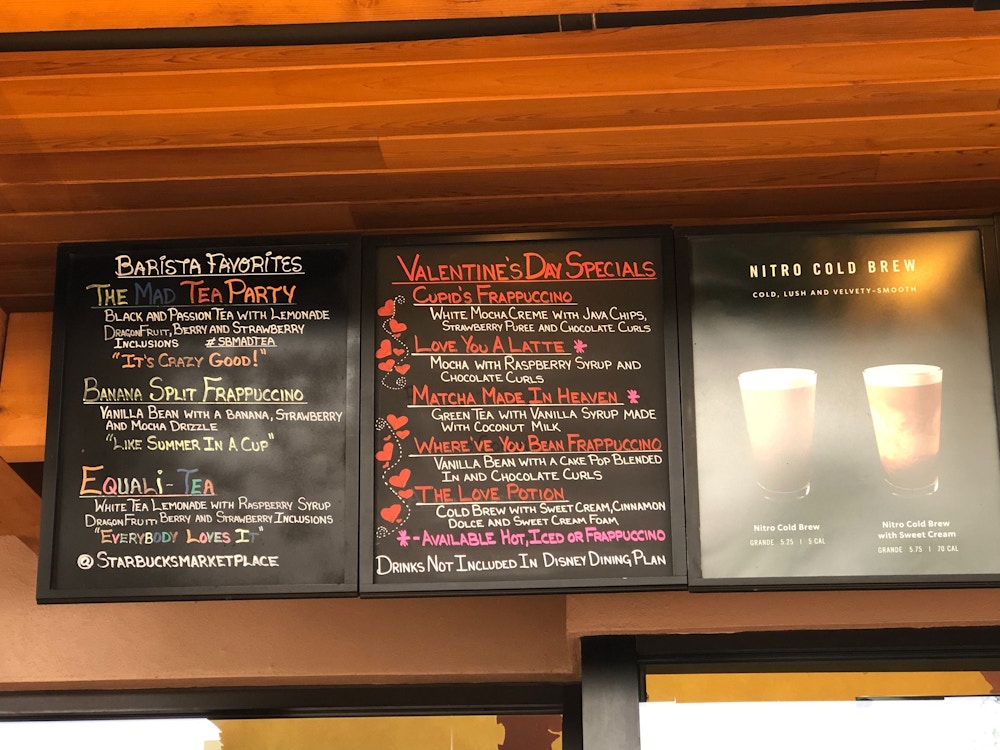 BARISTA FAVORITES
THE MAD TEA PARTY
BLACK AND PASSION TEA WITH LEMONADE
DRAGONFRUIT, BERRY AND STRAWBERRY
INCLUSIONS #SBMADTEA
"IT'S CRAZY GOOD!"
BANANA SPLIT FRAPPUCCINO
VANILLA BEAN WITH A BANANA, STRAWBERRY
AND MOCHA DRIZZLE
"LIKE SUMMER IN A CUP"
EQUALI-TEA
WHITE TEA LEMONADE WITH RASPBERRY SYRUP
DRAGONFRUIT BERRY AND STRAWBERRY INCLUSIONS
"EVERYBODY LOVES IT"
@STARBUCKSMARKETPLACE
VALENTINE'S DAY SPECIALS
CUPID'S FRAPPUCCINO
WHITE MOCHA CREME WITH JAVA CHIPS,
STRAWBERRY PUREE AND CHOCOLATE CURLS
LOVE YOU A LATTE *
MOCHA WITH RASPBERRY SYRUP AND
CHOCOLATE CURLS
MATCHA MADE IN HEAVEN *
GREEN TEA WITH VANILLA SYRUP MADE
WITH COCONUT MILK
WHERE'VE YOU BEAN FRAPPUCCINO
VANILLA BEAN WITH A CAKE POP BLENDED
IN AND CHOCOLATE CURLS
THE LOVE POTION
COLD BREW WITH SWEET CREAM, CINNAMON
DOLCE AND SWEET CREAM FOAM
*-AVAILABLE HOT, ICED OR FRAPPUCCINO
DRINKS NOT INCLUDED IN DISNEY DINING PLAN
NITRO COLD BREW
COLD, LUSH AND VELVETY-SMOOTH
Nitro Cold Brew
GRANDE 5.25 | 5 CAL
Nitro Cold Brew
with Sweet Cream
GRANDE 5.75 | 70 CAL